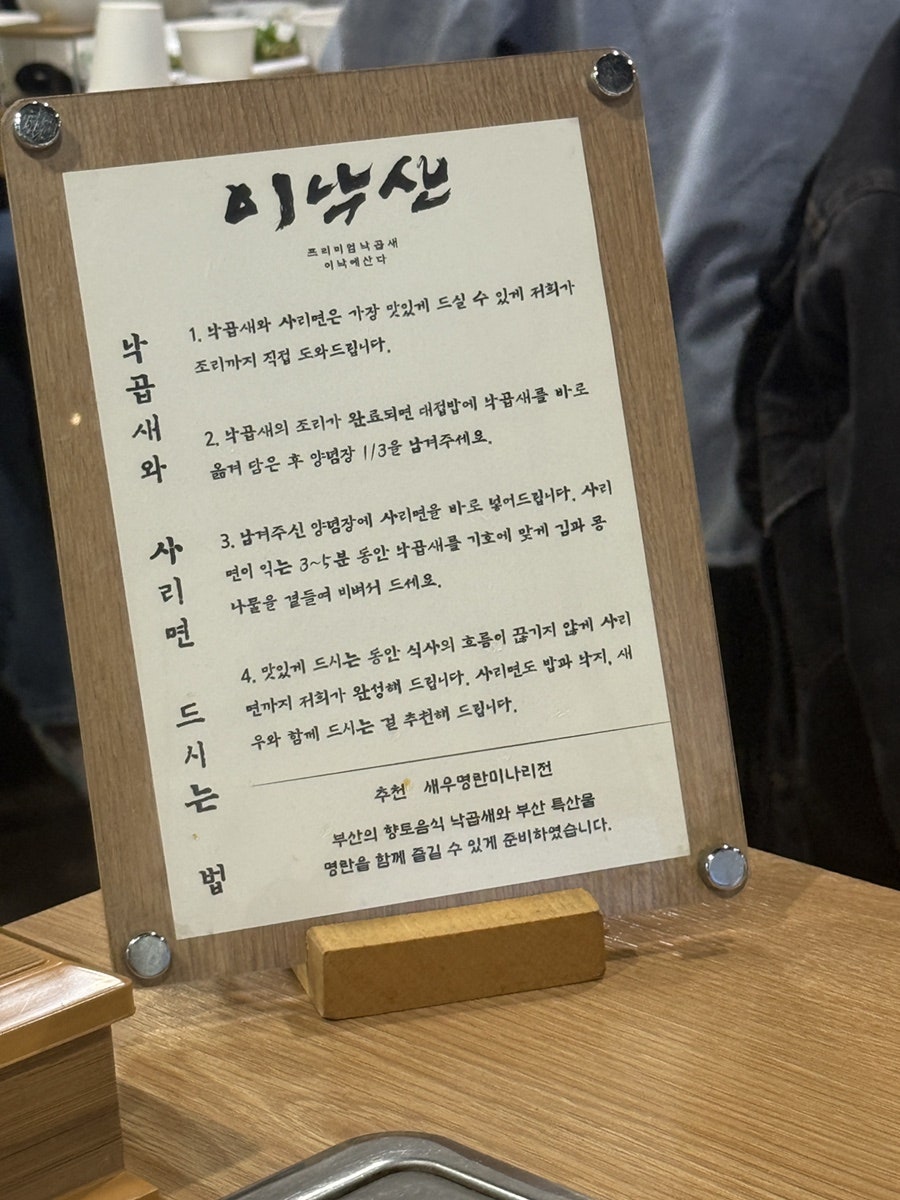 이낙산
프리미엄낙곱새
이낙에산다
낙곱새와 사리면 드시는 법
1. 낙곱새와 사리면은 가장 맛있게 드실 수 있게 저희가
조리까지 직접 도와드립니다.
2. 낙곱새의 조리가 완료되면 대접밥에 낙곱새를 바로
옮겨 담은 후 양념장 1/3을 남겨주세요.
3. 남겨주신 양념장에 사리면을 바로 넣어드립니다. 사리
면이 익는 3~5분 동안 낙곱새를 기호에 맞게 김과 콩
나물을 곁들여 비벼서 드세요.
4. 맛있게 드시는 동안 식사의 흐름이 끊기지 않게 사리
면까지 저희가 완성해 드립니다. 사리면도 밥과 낙지, 새
우와 함께 드시는 걸 추천해 드립니다.
추천 새우명란미나리전
부산의 향토음식 낙곱새와 부산 특산물
명란을 함께 즐길 수 있게 준비하였습니다.